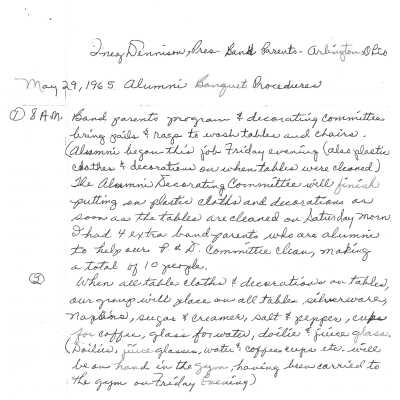 Inez Dennison, Pres Band Parents - Arlington Ohio
May 29, 1965 Alumni Banquet Procedures
① 8 A.M. Band parents program & decorating committee
bring pails & rags to wash tables and chairs.
(Alumni began this job Friday evening (also plastic
clothes & decorations on when tables were cleaned)
The Alumni Decorating Committee will finish
putting on plastic cloths and decorations as
soon as the tables are cleaned on Saturday morn.
I had 4 extra band parents who are alumni
to help our P. & D. Committee clean, making
a total of 10 people.
② When all table cloths & decorations on tables,
our group will place on all tables silverware,
napkins, sugar & creamer, salt & pepper, cups
for coffee, glass for water, doilie & juice glass.
(Doilies, juice glasses, water & coffee cups etc. will
be on hand in the gym, having been carried to
the gym on Friday Evening)